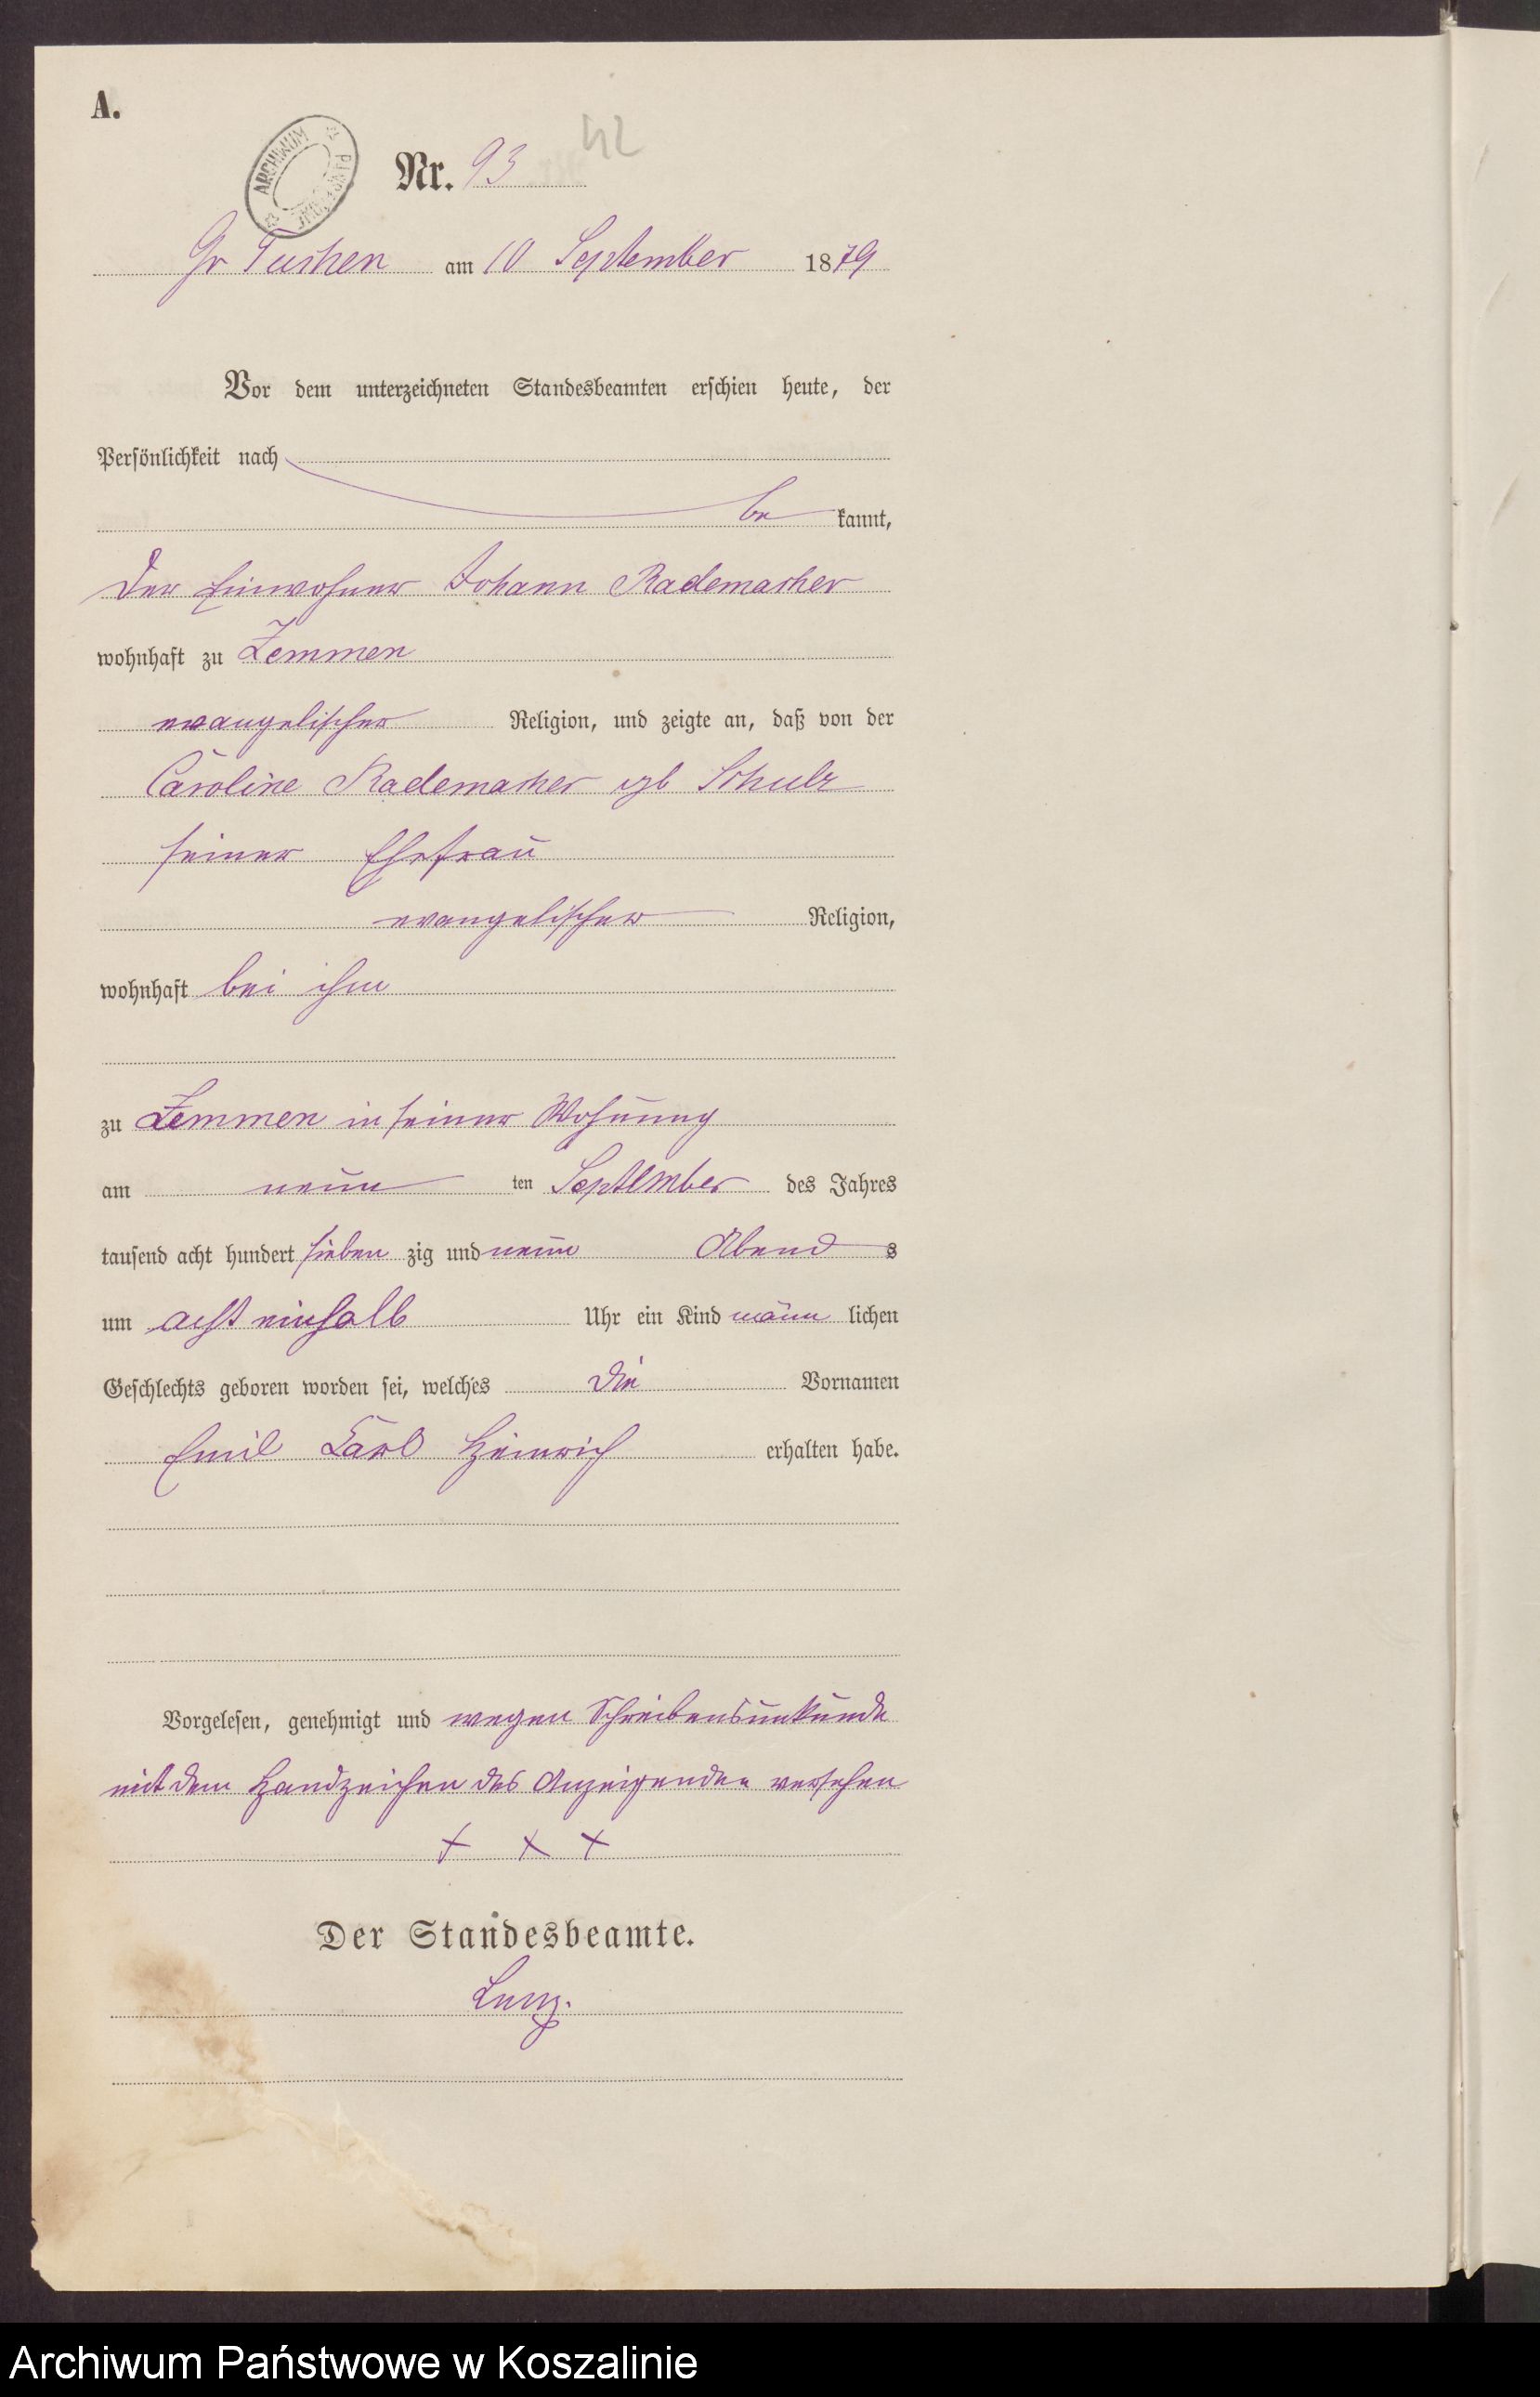 A.
ARCHIWUM
42
Nr. 93
Gr Tuchen am 10 September 1879
Vor dem unterzeichneten Standesbeamten erschien heute, der
Persönlichkeit nach
be kannt,
der Einwohner Johann Rademacher
wohnhaft zu Zemmen
evangelischer Religion, und zeigte an, daß von der
Caroline Rademacher geb Schulz
seiner Ehefrau
evangelischer Religion,
wohnhaft bei ihm
zu Zemmen in seiner Wohnung
am neun ten September des Jahres
tausend acht hundert sieben zig und neun Abend s
um acht einhalb Uhr ein Kind männ lichen
Geschlechts geboren worden sei, welches die Vornamen
Emil Carl Heinrich erhalten habe.
Vorgelesen, genehmigt und wegen Schreibensunkunde
mit dem Handzeichen des Anzeigenden versehen
+ + +
Der Standesbeamte.
Archiwum Państwowe w Koszalinie